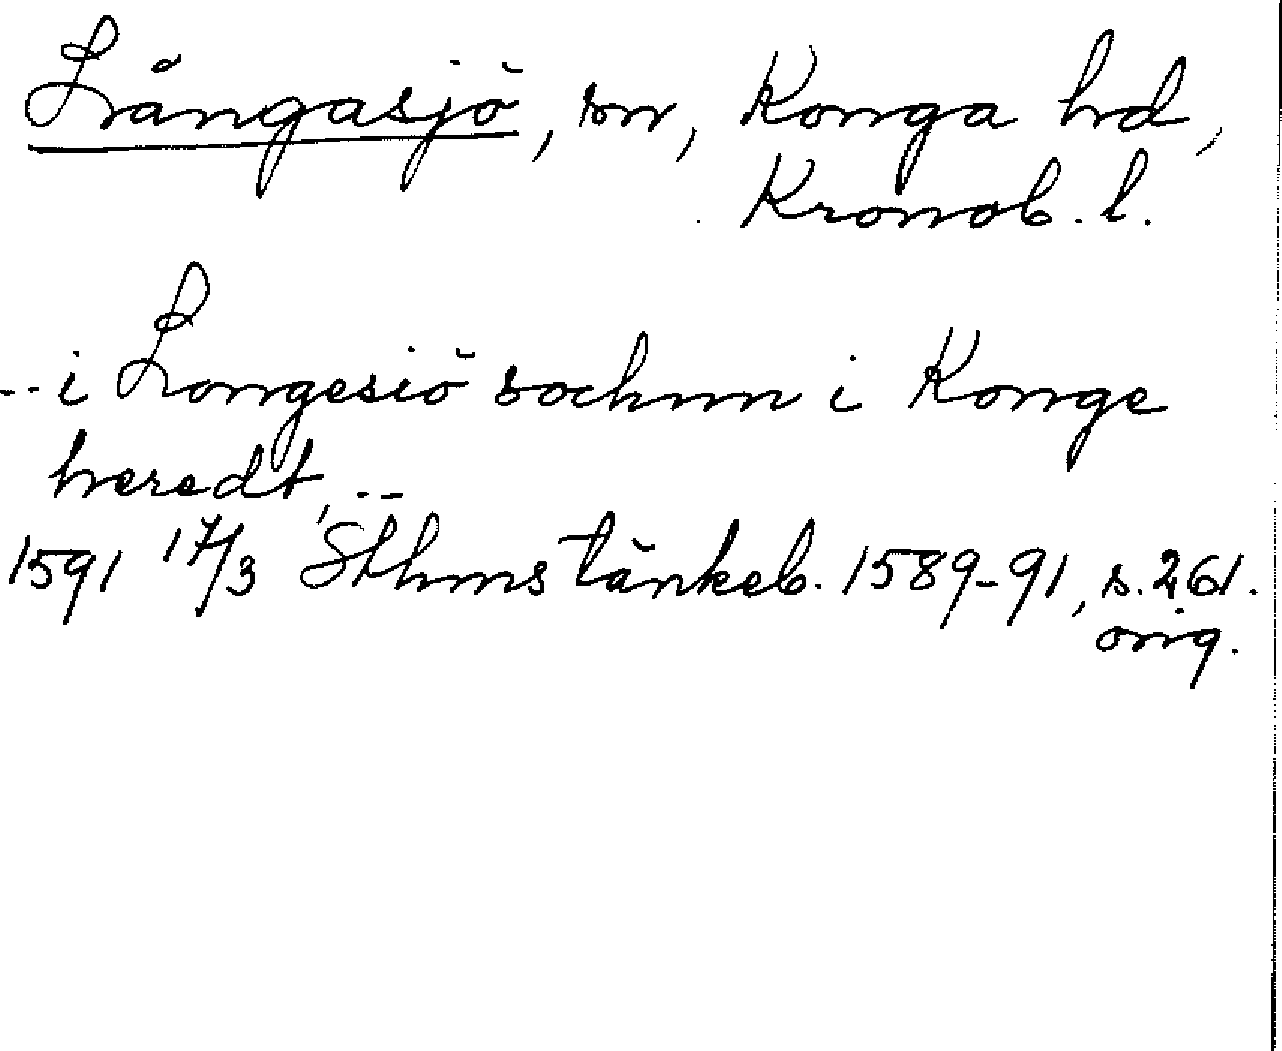 Långasjö, sn, Konga hd,
Kronob. l.
-- i Longesiö sochnn i Konge
heredt, --
1591 17/3 Sthms tänkeb. 1589-91, s. 261.
orig.